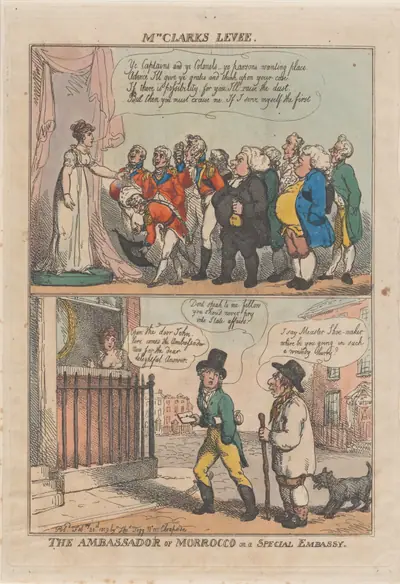 Mrs CLARKS LEVEE.
Ye Captains and ye Colonels, ye parsons wanting place
Advice I'll give ye gratis and think upon your case
If there is possibility for you I'll raise the dust
But then you must excuse me If I serve myself the first
Dont speak to me fellow
you should never pry
into State affairs!
Open the door John
here comes the Ambassador
now for the dear
delightful Answer.
I say Measter Shoe maker
where be you going in such
a
THE AMBASSADOR OF MORROCCO on a SPECIAL EMBASSY.